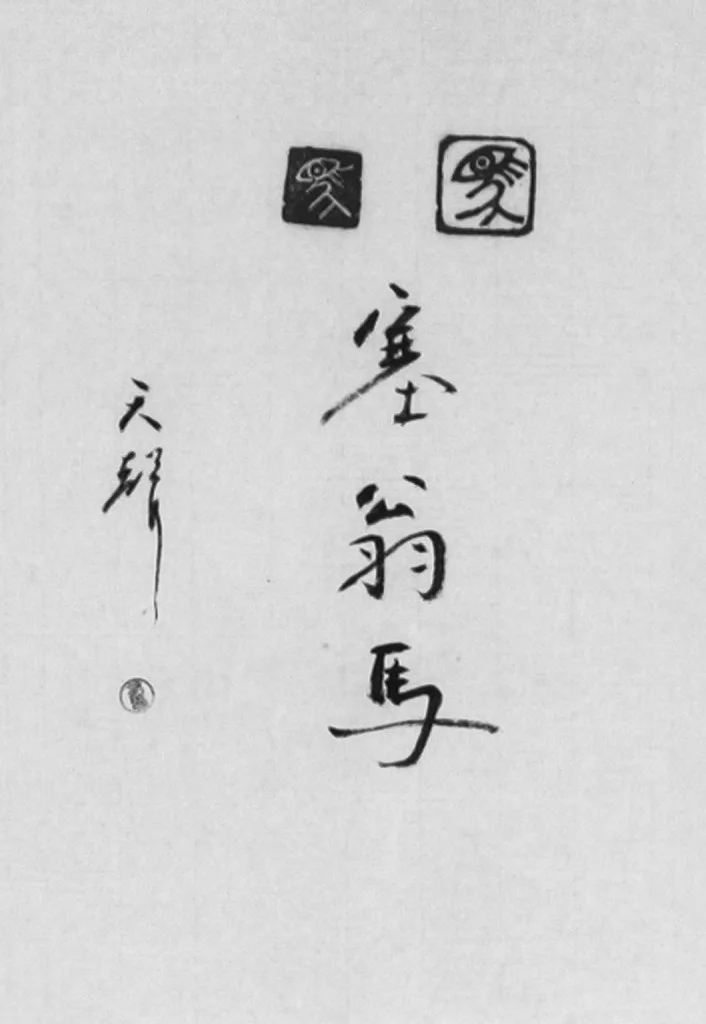 塞翁馬
天聲